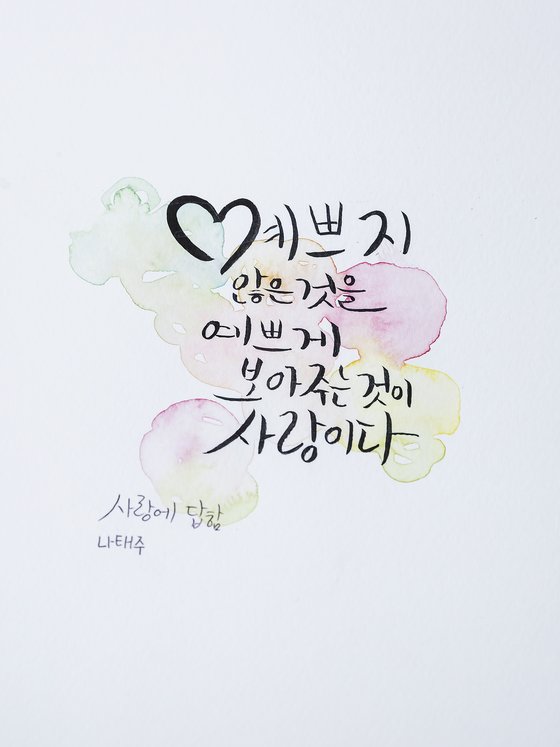 예쁘지
않은 것을
예쁘게
보아주는 것이
사랑이다
사랑에 답함
나태주